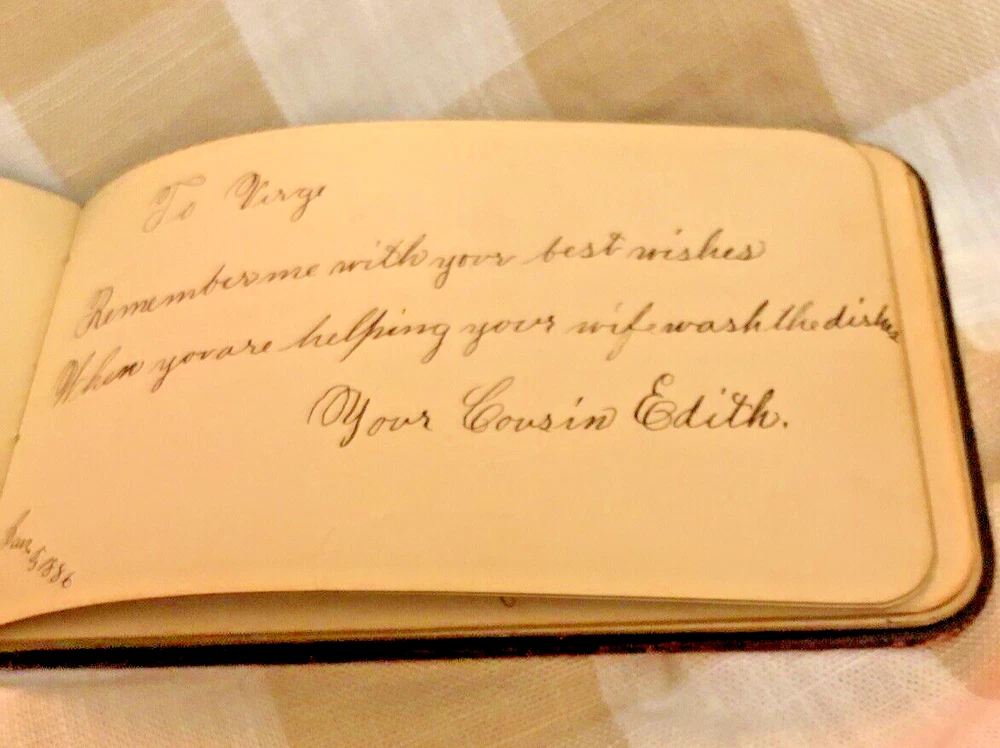 To Virge
Remember me with your best wishes
When you are helping your wife wash the dishes
Your Cousin Edith.
Jan 5 1886